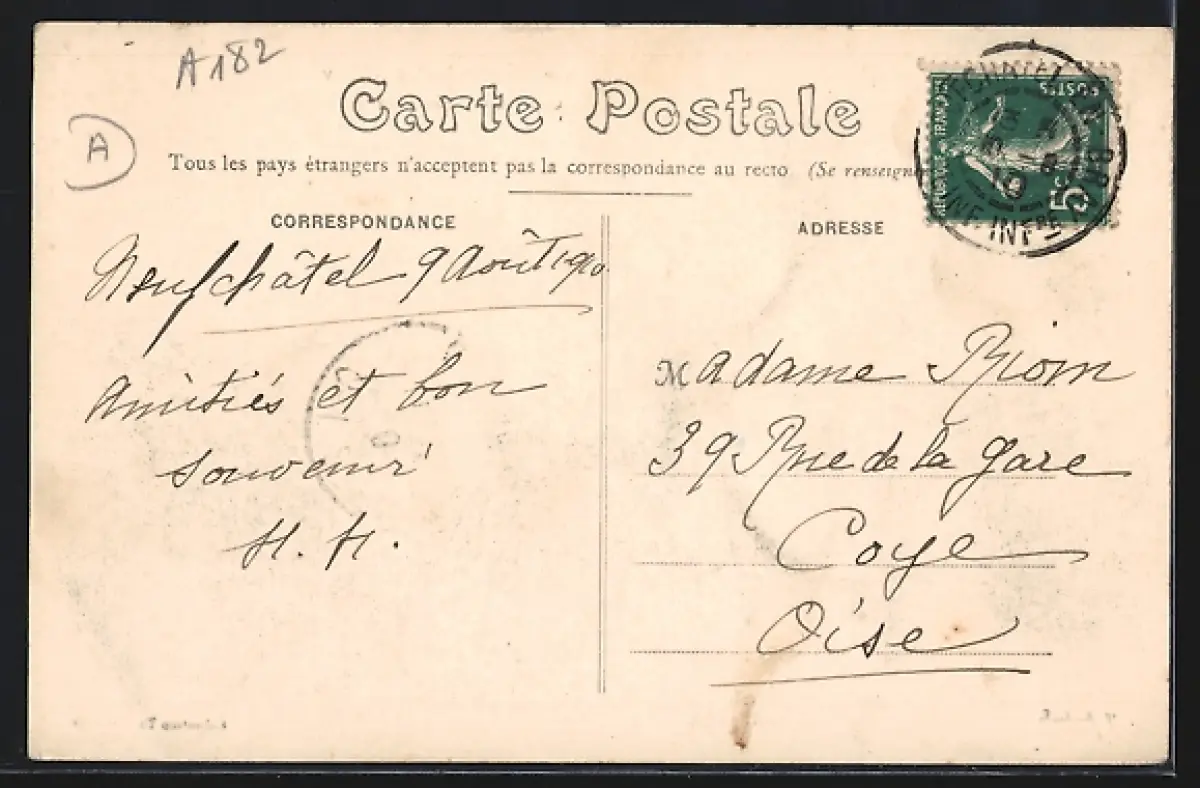 A182
A
Carte Postale
Tous les pays étrangers n'acceptent pas la correspondance au recto (Se renseign
CORRESPONDANCE
ADRESSE
RÉPUBLIQUE FRANÇAISE
POSTES
5c
Neufchâtel 9 Août 1910
Amitiés et bon
souvenir
H. H.
Madame Riom
39 Rue de la gare
Coye
Oise